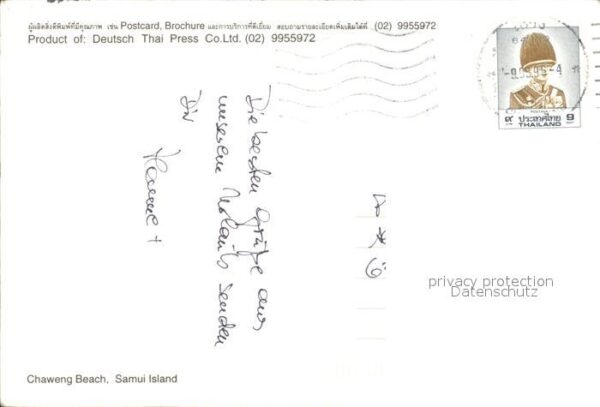 ผู้ผลิตสิ่งตีพิมพ์ที่มีคุณภาพ เช่น Postcard, Brochure และการบริการที่ดีเยี่ยม สอบถามรายละเอียดเพิ่มเติมได้ที่ (02) 9955972
Product of: Deutsch Thai Press Co.Ltd. (02) 9955972
๙ ประเทศไทย 9
THAILAND
Die besten Grüße aus
unserem Urlaub senden
Dir
privacy protection
Datenschutz
Chaweng Beach, Samui Island